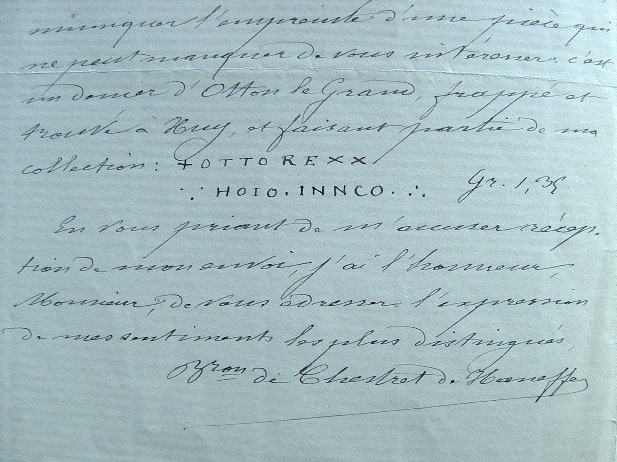 muniquer l'empreinte d'une pièce qui
ne peut manquer de vous intéresser. c'est
un denier d'Otton le Grand, frappé et
trouvé à Huy, et faisant partie de ma
collection: +OTTO REXX
∵ HOIO. INNCO. ∴ Gr. 1,35
En vous priant de m'accuser récep-
tion de mon envoi, j'ai l'honneur,
Monsieur, de vous adresser l'expression
de mes sentiments les plus distingués,
Bron de Chestret de Haneffe